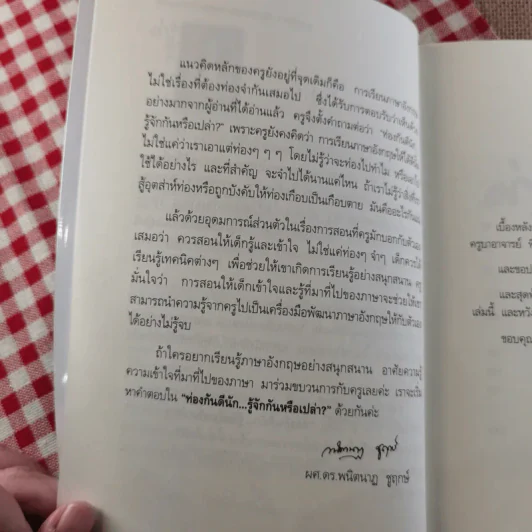 แนวคิดหลักของครูยังอยู่ที่จุดเดิมก็คือ การเรียนภาษาอังกฤษ
ไม่ใช่เรื่องที่ต้องท่องจำกันเสมอไป ซึ่งได้รับการตอบรับว่าเห็นด้วย
อย่างมากจากผู้อ่านที่ได้อ่านแล้ว ครูจึงตั้งคำถามต่อว่า "ท่องกันดีนัก
รู้จักกันหรือเปล่า?" เพราะครูยังคงคิดว่า การเรียนภาษาอังกฤษให้ได้ดีนั้น
ไม่ใช่แค่ว่าเราเอาแต่ท่องๆ ๆ ๆ โดยไม่รู้ว่าจะท่องไปทำไม
ใช้ได้อย่างไร และที่สำคัญ จะจำไปได้นานแค่ไหน ถ้าเราไม่รู้ว่าสิ่งที่
สู้อุตส่าห์ท่องหรือถูกบังคับให้ท่องเกือบเป็นเกือบตาย มันคืออะไรกันแน่
แล้วด้วยอุดมการณ์ส่วนตัวในเรื่องการสอนที่ครูมักบอกกับตัวเอง
เสมอว่า ควรสอนให้เด็กรู้และเข้าใจ ไม่ใช่แค่ท่องๆ จำๆ เด็กควรได้
เรียนรู้เทคนิคต่างๆ เพื่อช่วยให้เขาเกิดการเรียนรู้อย่างสนุกสนาน
มั่นใจว่า การสอนให้เด็กเข้าใจและรู้ที่มาที่ไปของภาษาจะช่วยให้เขา
สามารถนำความรู้จากครูไปเป็นเครื่องมือพัฒนาภาษาอังกฤษให้กับตัวเอง
ได้อย่างไม่รู้จบ
ถ้าใครอยากเรียนรู้ภาษาอังกฤษอย่างสนุกสนาน อาศัยความรู้
ความเข้าใจที่มาที่ไปของภาษา มาร่วมขบวนการกับครูเลยค่ะ เราจะเริ่ม
หาคำตอบใน "ท่องกันดีนัก...รู้จักกันหรือเปล่า?" ด้วยกันค่ะ
ผศ.ดร.พนิตนาฏ ชูฤกษ์
เบื้องหลัง
ครูบาอาจารย์
และขอ
และสุด
เล่มนี้ และหวัง
ขอบคุณ